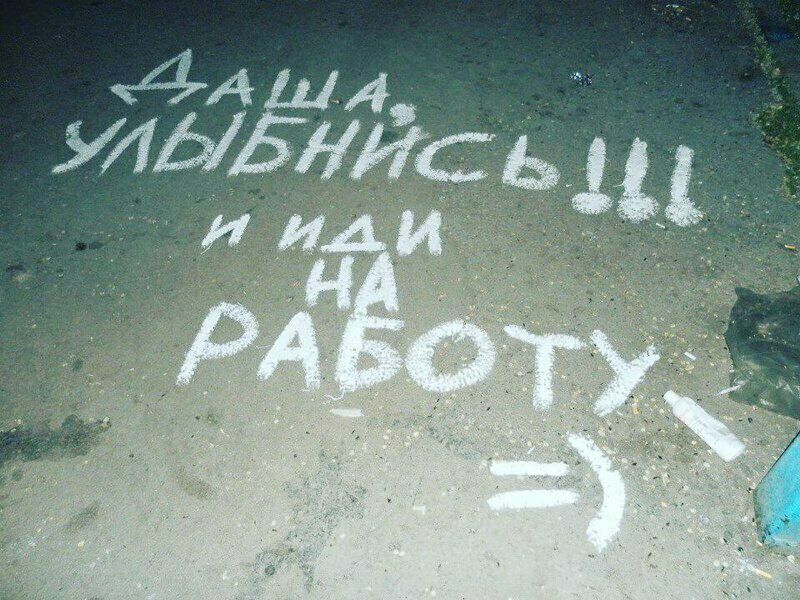 ДАША,
УЛЫБНИСЬ!!!
и иди
НА
РАБОТУ
=)